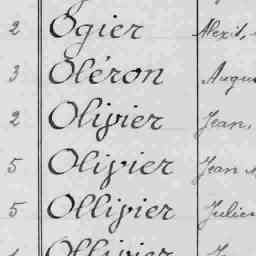 2 Ogier Alexis,
3 Oléron Augu
2 Olivier Jean,
5 Olivier Jean
5 Ollivier Julien
Ollivier